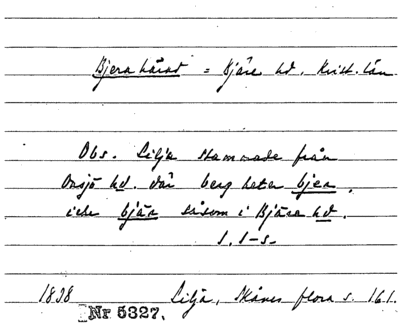 Bjera härad = Bjäre hd. Krist. län
Obs. Lilja stammade från
Onsjö hd. där berg heter bjer,
icke bjär såsom i Bjäre hd.
S. I-s-
1838 Lilja, Skånes flora s. 161.
Nr 5327.